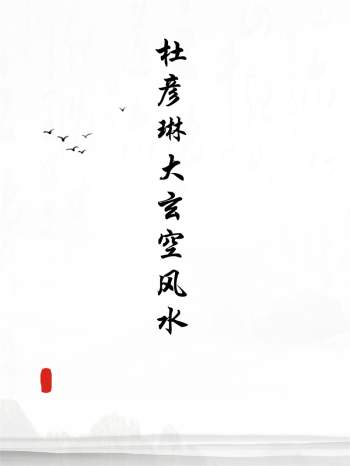 杜彦琳大玄空风水